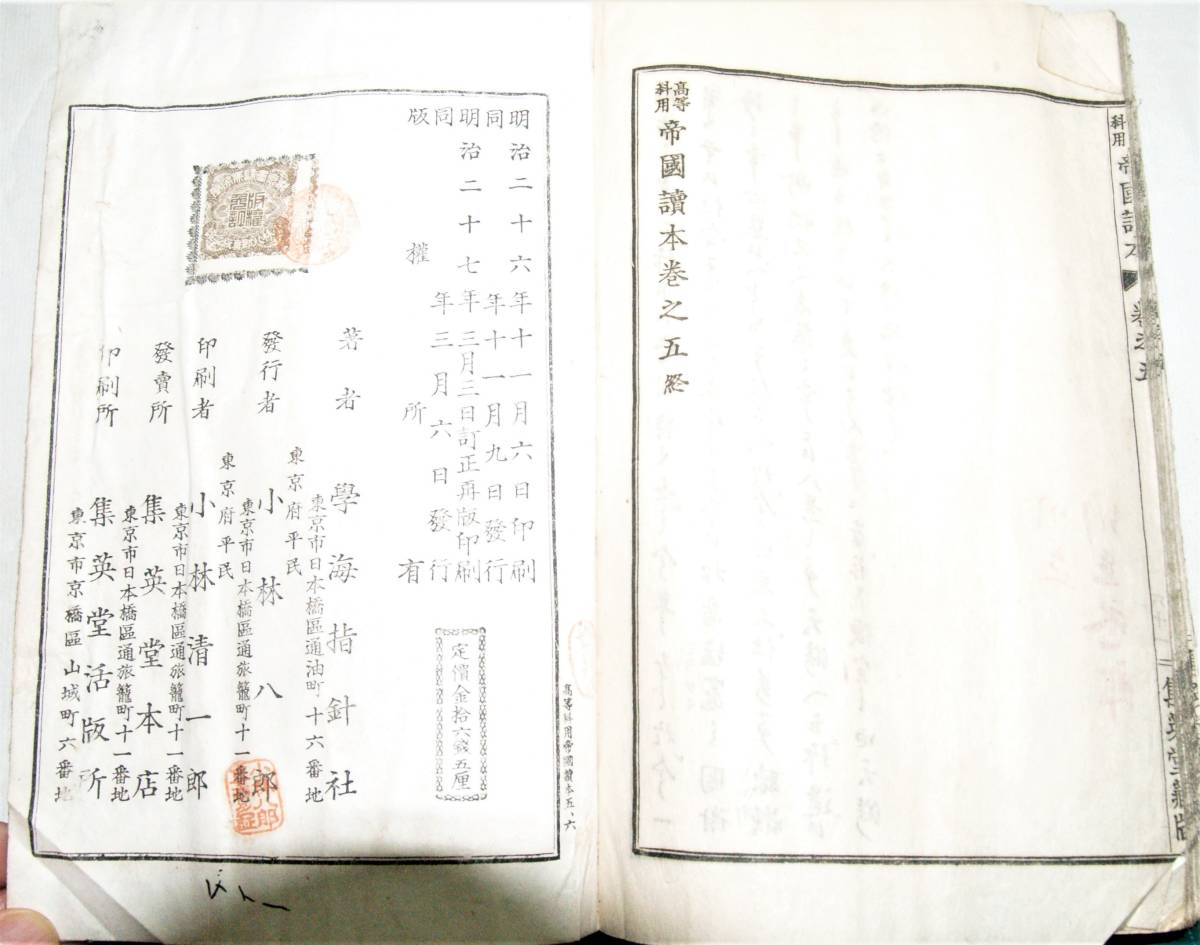 科用 帝國讀本 卷之五
集英堂藏版
高等科用 帝國讀本卷之五終
高等科用帝國讀本五、六
明治二十六年十一月六日印刷
同年十一月九日發行
明治二十七年三月三日訂正再版印刷
同年三月六日發行
版權所有
定價金拾六錢五厘
著者 學海指針社
東京市日本橋區通油町十六番地
東京府平民
發行者 小林八郎
東京市日本橋區通旅籠町十一番地
東京府平民
印刷者 小林清一郎
東京市日本橋區通旅籠町十一番地
發賣所 集英堂本店
東京市日本橋區通旅籠町十一番地
印刷所 集英堂活版所
東京市京橋區山城町六番地